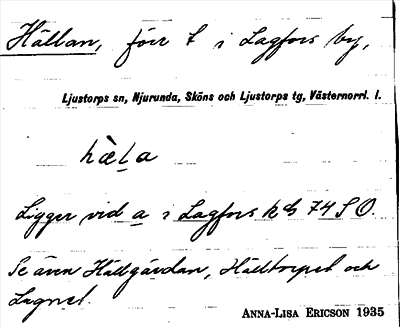 Hällan, förr t i Lagfors by,
Ljustorps sn, Njurunda, Sköns och Ljustorps tg, Västernorrl. l.
hæ̀la
Ligger vid a i Lagfors kb 74 S O.
Se även Hällgårdan, Hälltorpet och
Lugnet.
ANNA-LISA ERICSON 1935